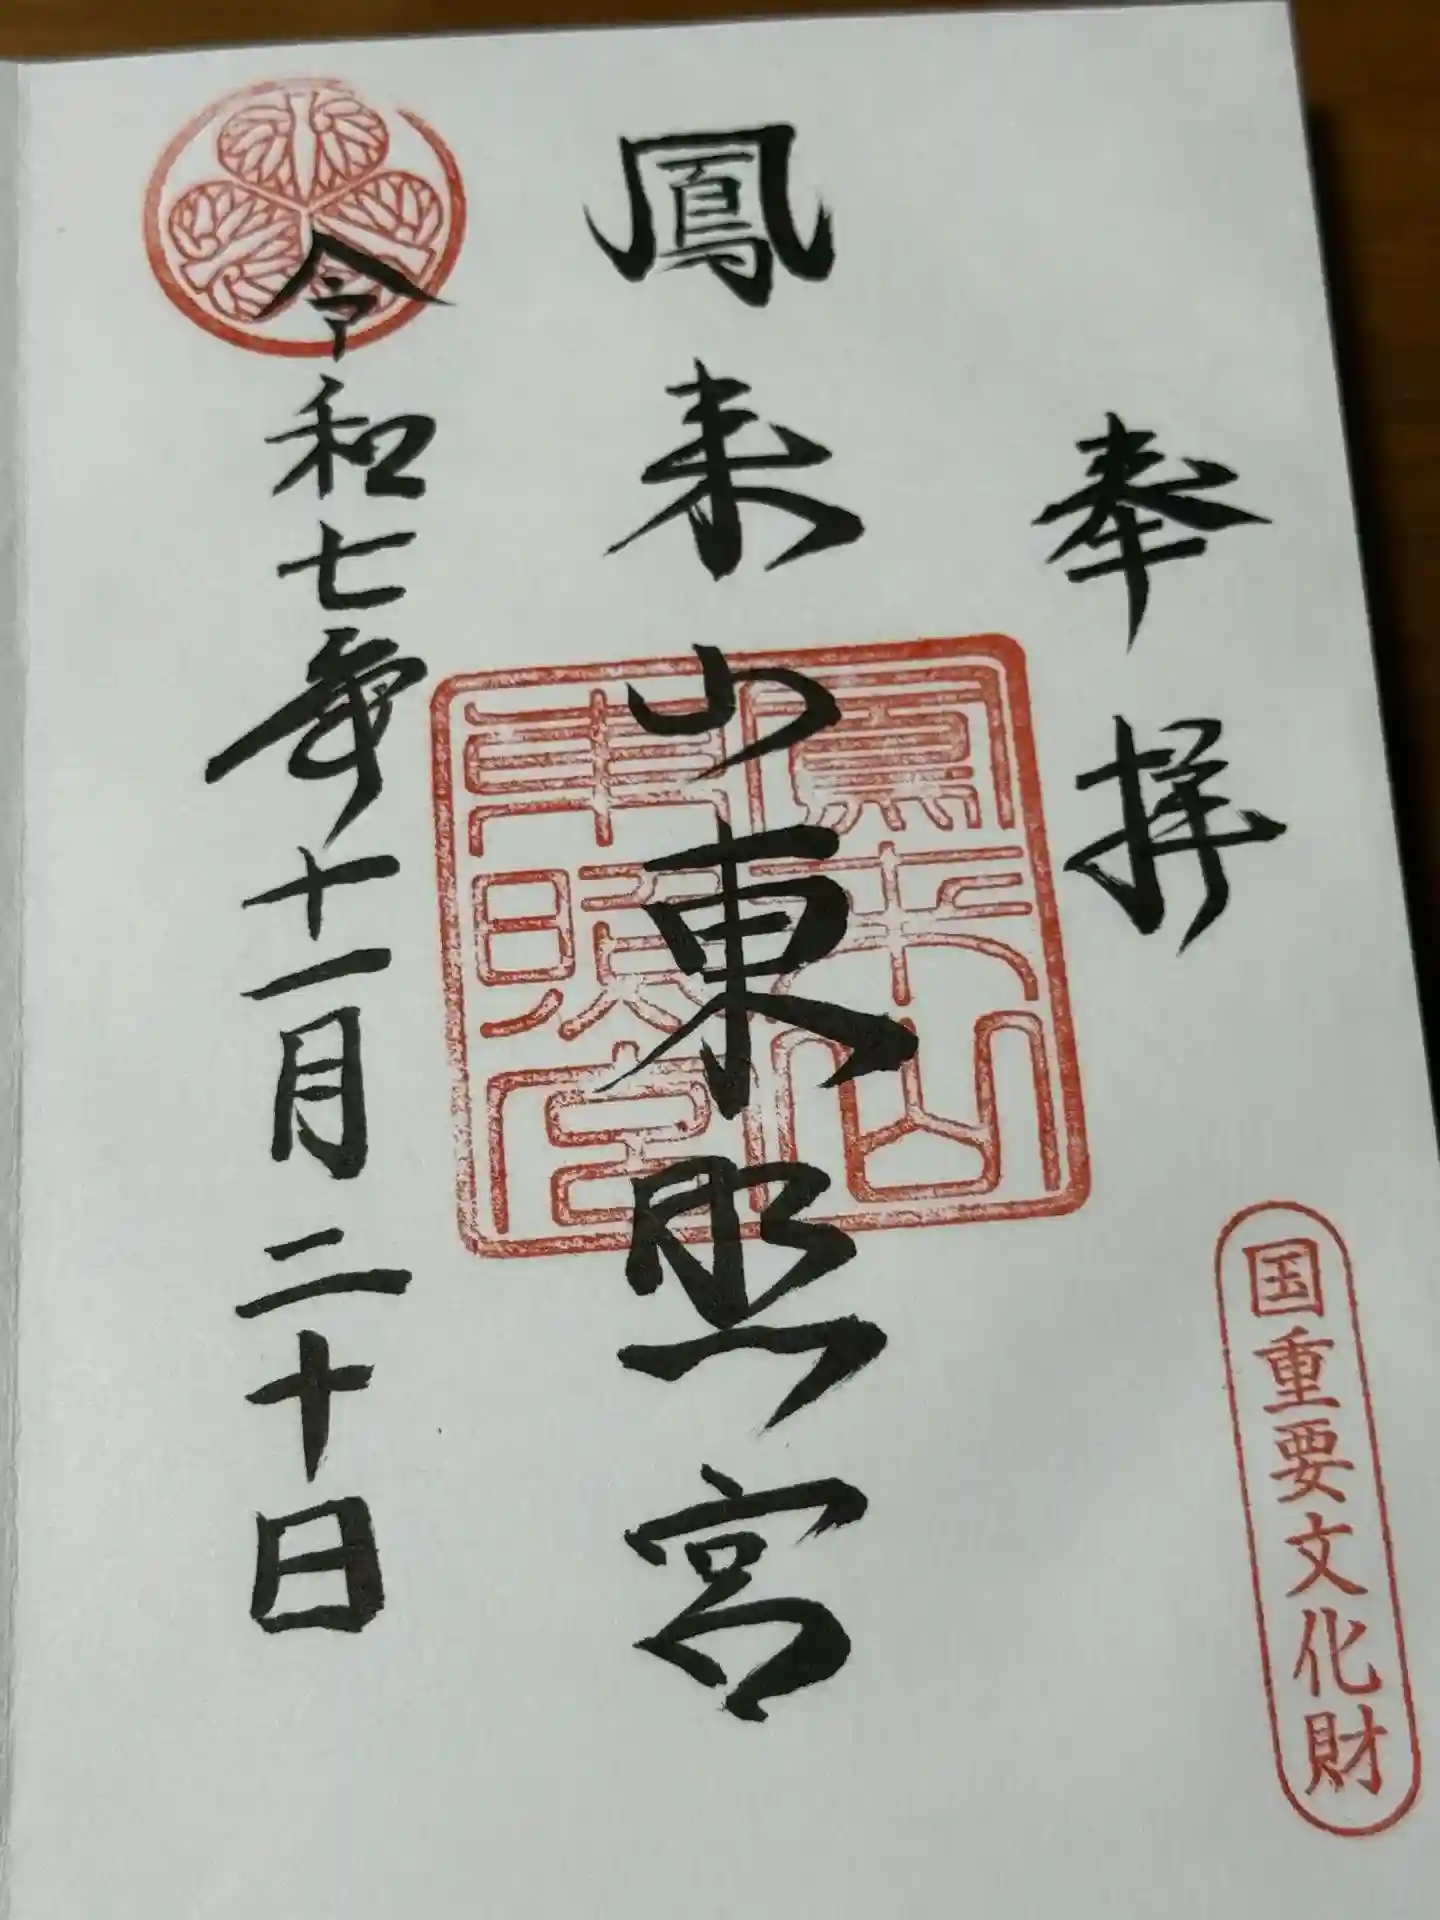 奉拝
国重要文化財
鳳来山東照宮
鳳来山
東照宮
令和七年十一月二十日